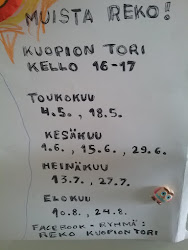 MUISTA REKO!
KUOPION TORI
KELLO 16-17
TOUKOKUU
4.5., 18.5.
KESÄKUU
1.6., 15.6., 29.6.
HEINÄKUU
13.7., 27.7.
ELOKUU
10.8., 24.8.
FACEBOOK-RYHMÄ:
REKO KUOPION TORI